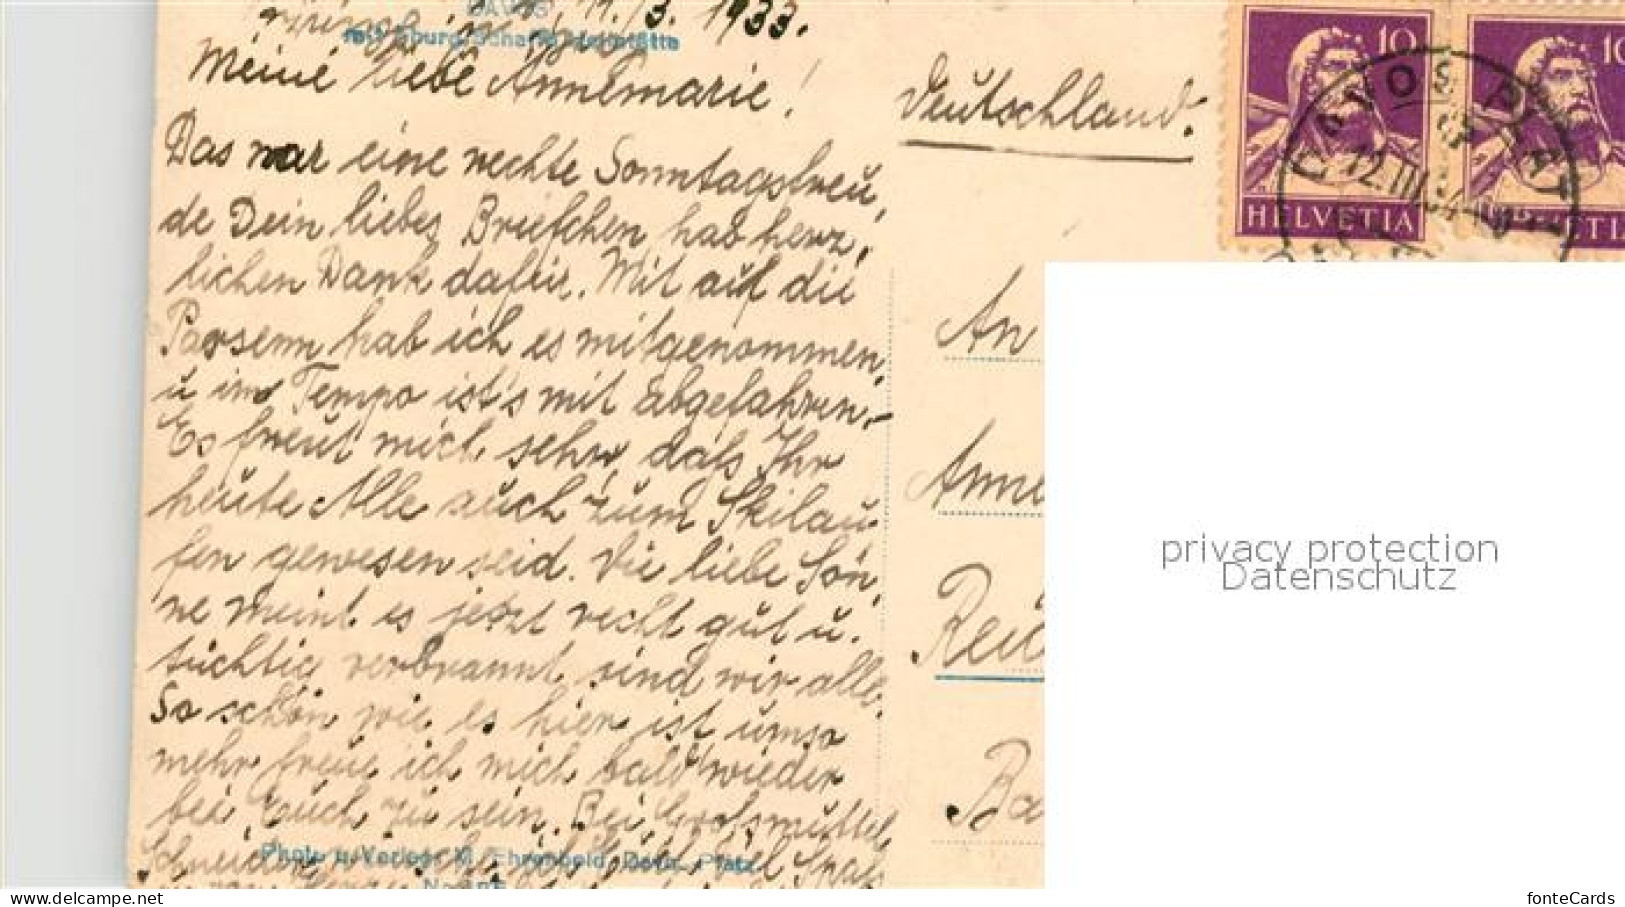 11./3. 1933.
Meine liebe Annemarie!
Das war eine rechte Sonntagsfreu,
de Dein liebes Briefchen hab herz,
lichen Dank dafür. Mit auf die
Parsenn hab ich es mitgenommen,
u im Tempo ist's mit abgefahren.-
Es freut mich sehr, daß Ihr
heute Alle auch zum Skilau-
fen gewesen seid. Die liebe Son,
ne meint es jetzt recht gut u.
tüchtig verbrannt sind wir alle.
So schön wie es hier ist umso
mehr freue ich mich bald wieder
bei Euch zu sein. Bei Großmuttel
Photo u. Verlag M. Ehrenbold, Davos-Platz
viel Spaß
Deutschland.
10
HELVETIA
10
DAVOS PLATZ
12.III.
An
Anne
Rei
Ba
privacy protection
Datenschutz
fonteCards